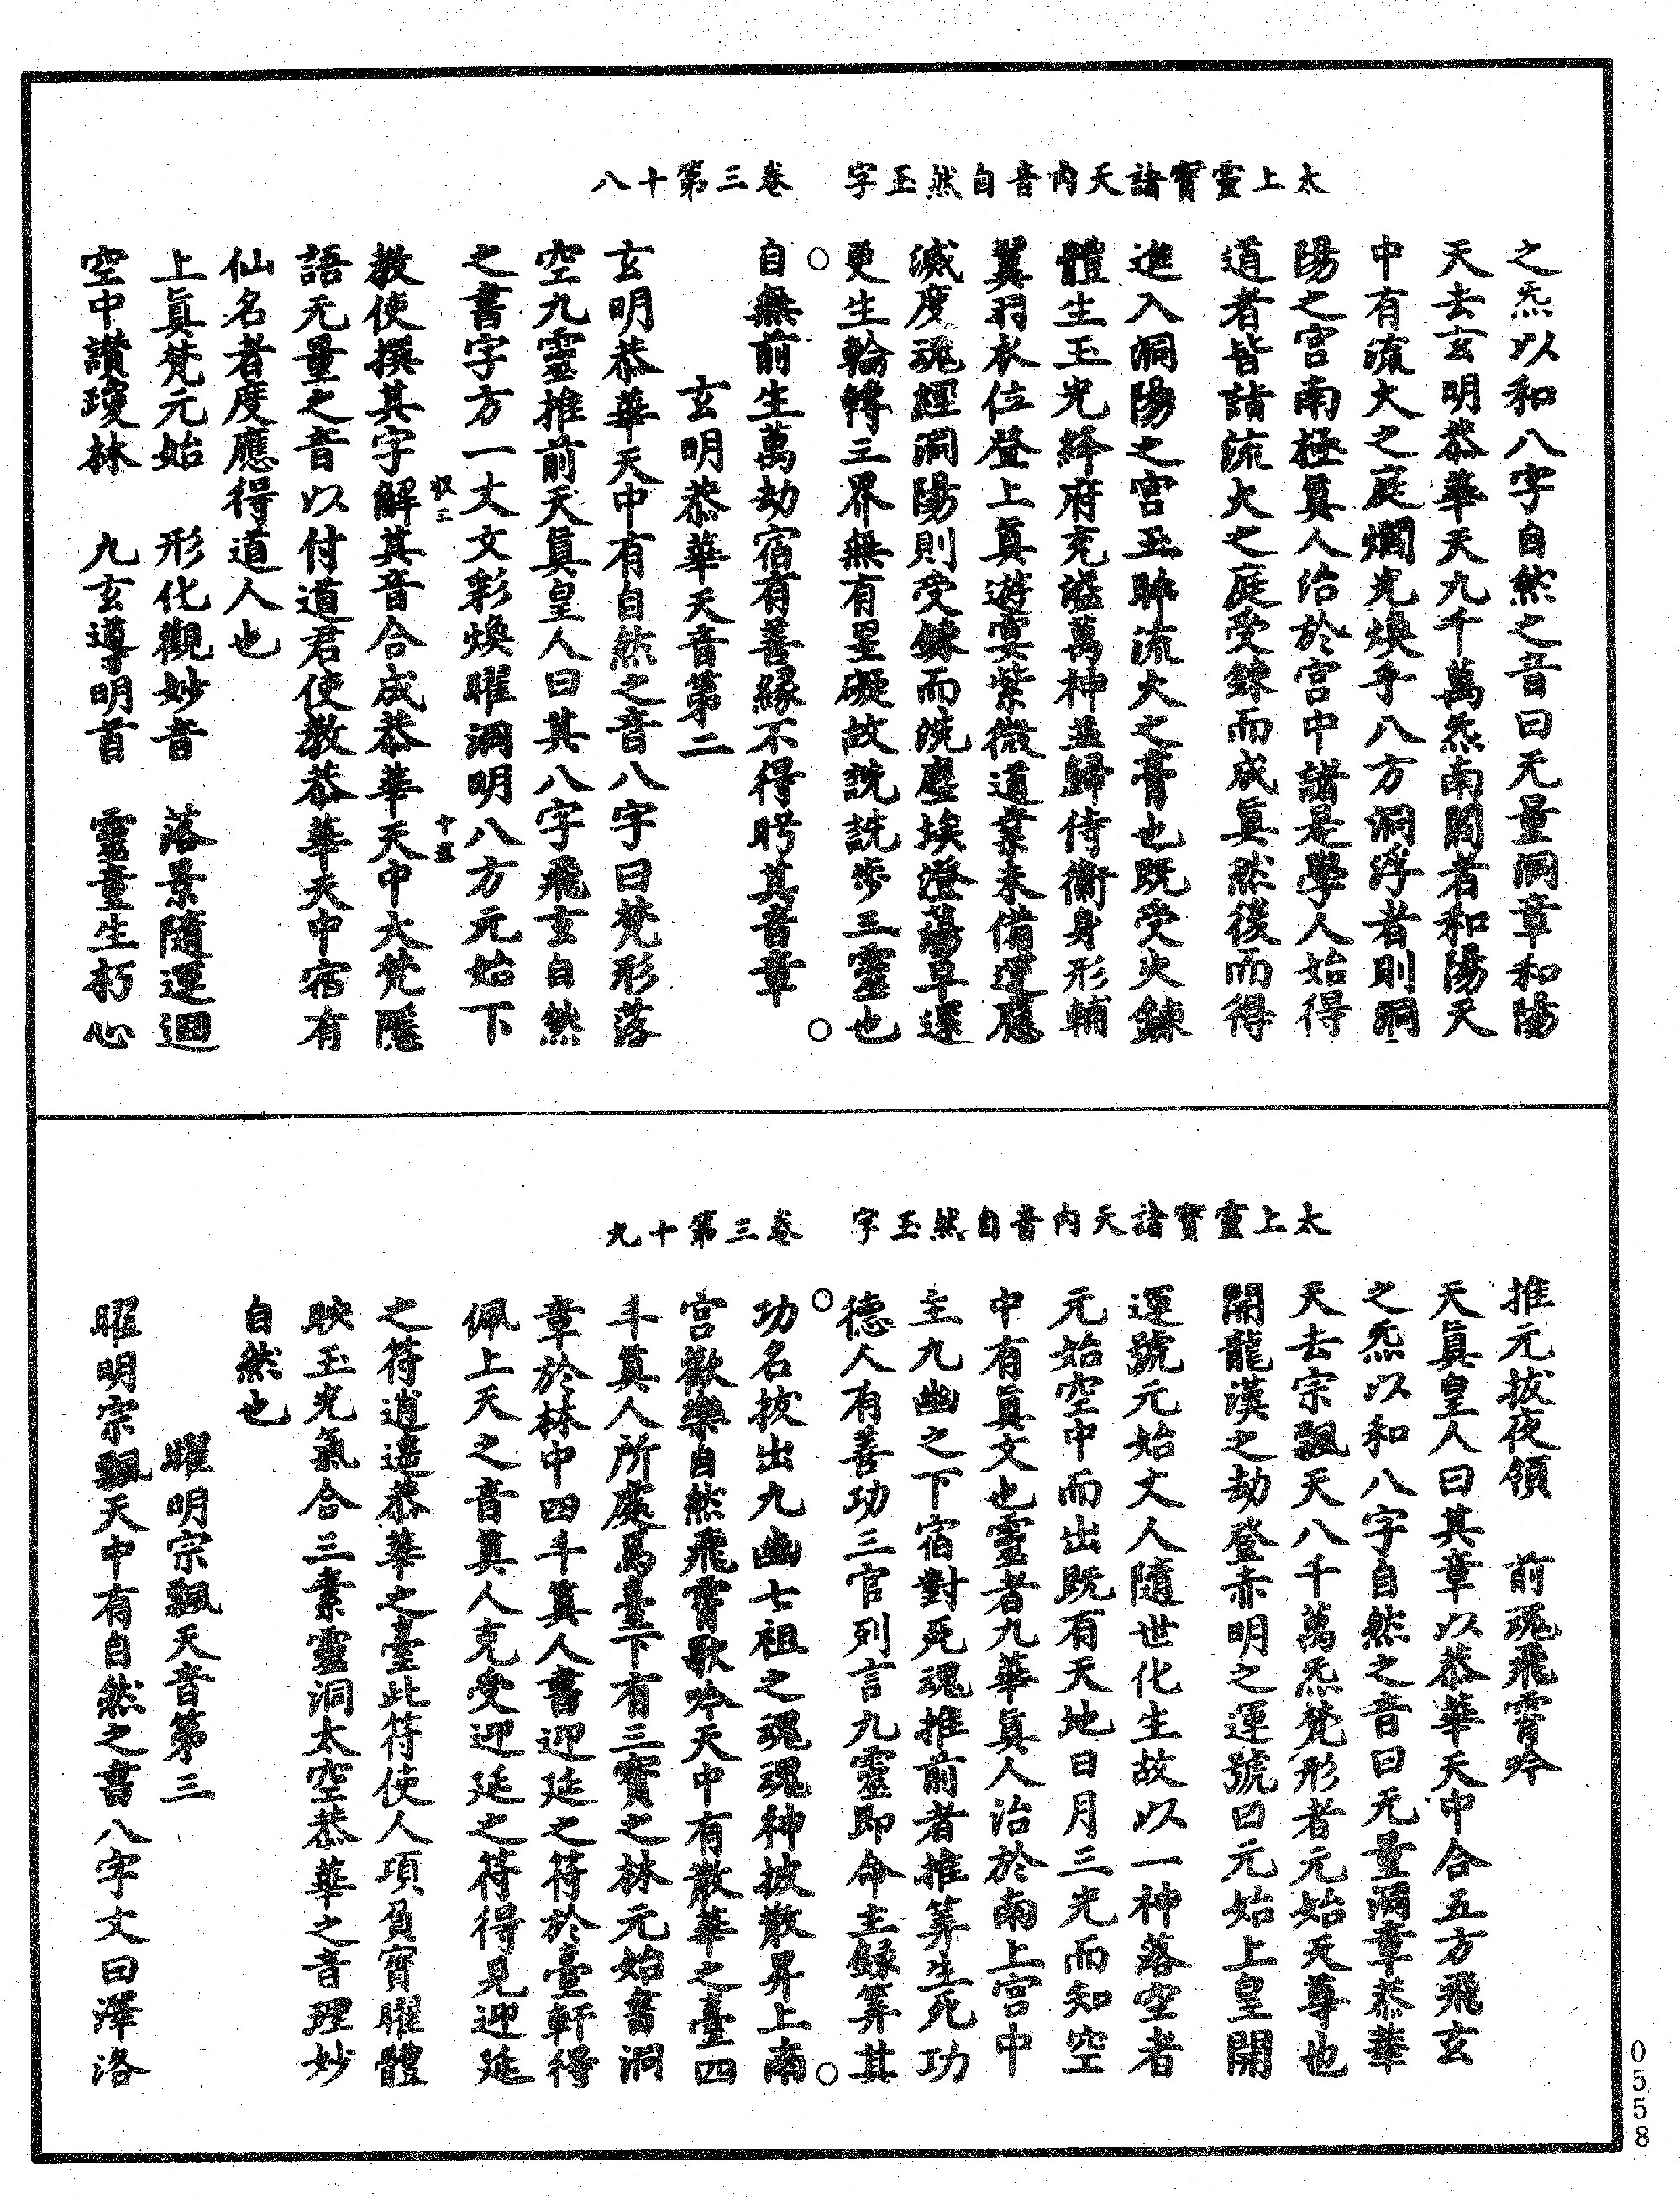 太上靈寶諸天内音自然玉字　卷三第十八
之炁以和八字自然之音曰无量洞章和陽
天去玄明恭華天九千萬炁南閻者和陽天
中有流火之庭爛光煥乎八方洞浮者則洞
陽之宮南極真人治於宮中諸是學人始得
道者皆詣流火之庭受錬而成真然後而得
進入洞陽之宮玉眸流火之膏也既受火錬
體生玉光絳府充溢萬神並歸侍衛身形輔
翼羽衣位登上真遊宴紫微道業未備運應
滅度魂經洞陽則受錬而洗塵埃澄蕩早還
更生輪轉三界無有罣礙故説詵步三靈也
自無前生萬劫宿有善緣不得眄其音章
玄明恭華天音第二
玄明恭華天中有自然之音八字曰梵形落
空九靈推前天真皇人曰其八字飛玄自然
之書字方一丈文彩煥曜洞明八方元始下
教使撰其字解其音合成恭華天中大梵隱
語无量之音以付道君使教恭華天中宿有
仙名者度應得道人也
上真梵元始　形化觀妙音　落景隨運迴
空中讃瓊林　九玄導明首　靈童生朽心
太上靈寶諸天内音自然玉字　卷三第十九
推元拔夜領　前魂飛霄吟
天真皇人曰其章以恭華天中合五方飛玄
之炁以和八字自然之音曰无量洞章恭華
天去宗飄天八千萬炁梵形者元始天尊也
開龍漢之劫登赤明之運號曰元始上皇開
運號元始丈人隨世化生故以一神落空者
元始空中而出既有天地日月三光而知空
中有真文也靈者九華真人治於南上宮中
主九幽之下宿對死魂推前者推筭生死功
德人有善功三官列言九靈即命主録筭其
功名拔出九幽七祖之魂魂神披散昇上南
宮歡樂自然飛霄歌吟天中有散華之臺四
斗真人所處焉臺下有三寶之林元始書洞
章於林中四斗真人書迎延之符於臺軒得
佩上天之音真人克受迎延之符得見迎延
之符逍遥恭華之臺此符使人項負寶曜體
映玉光氣合三素靈洞太空恭華之音理妙
自然也
曜明宗飄天音第三
曜明宗飄天中有自然之書八字文曰澤洛
0558